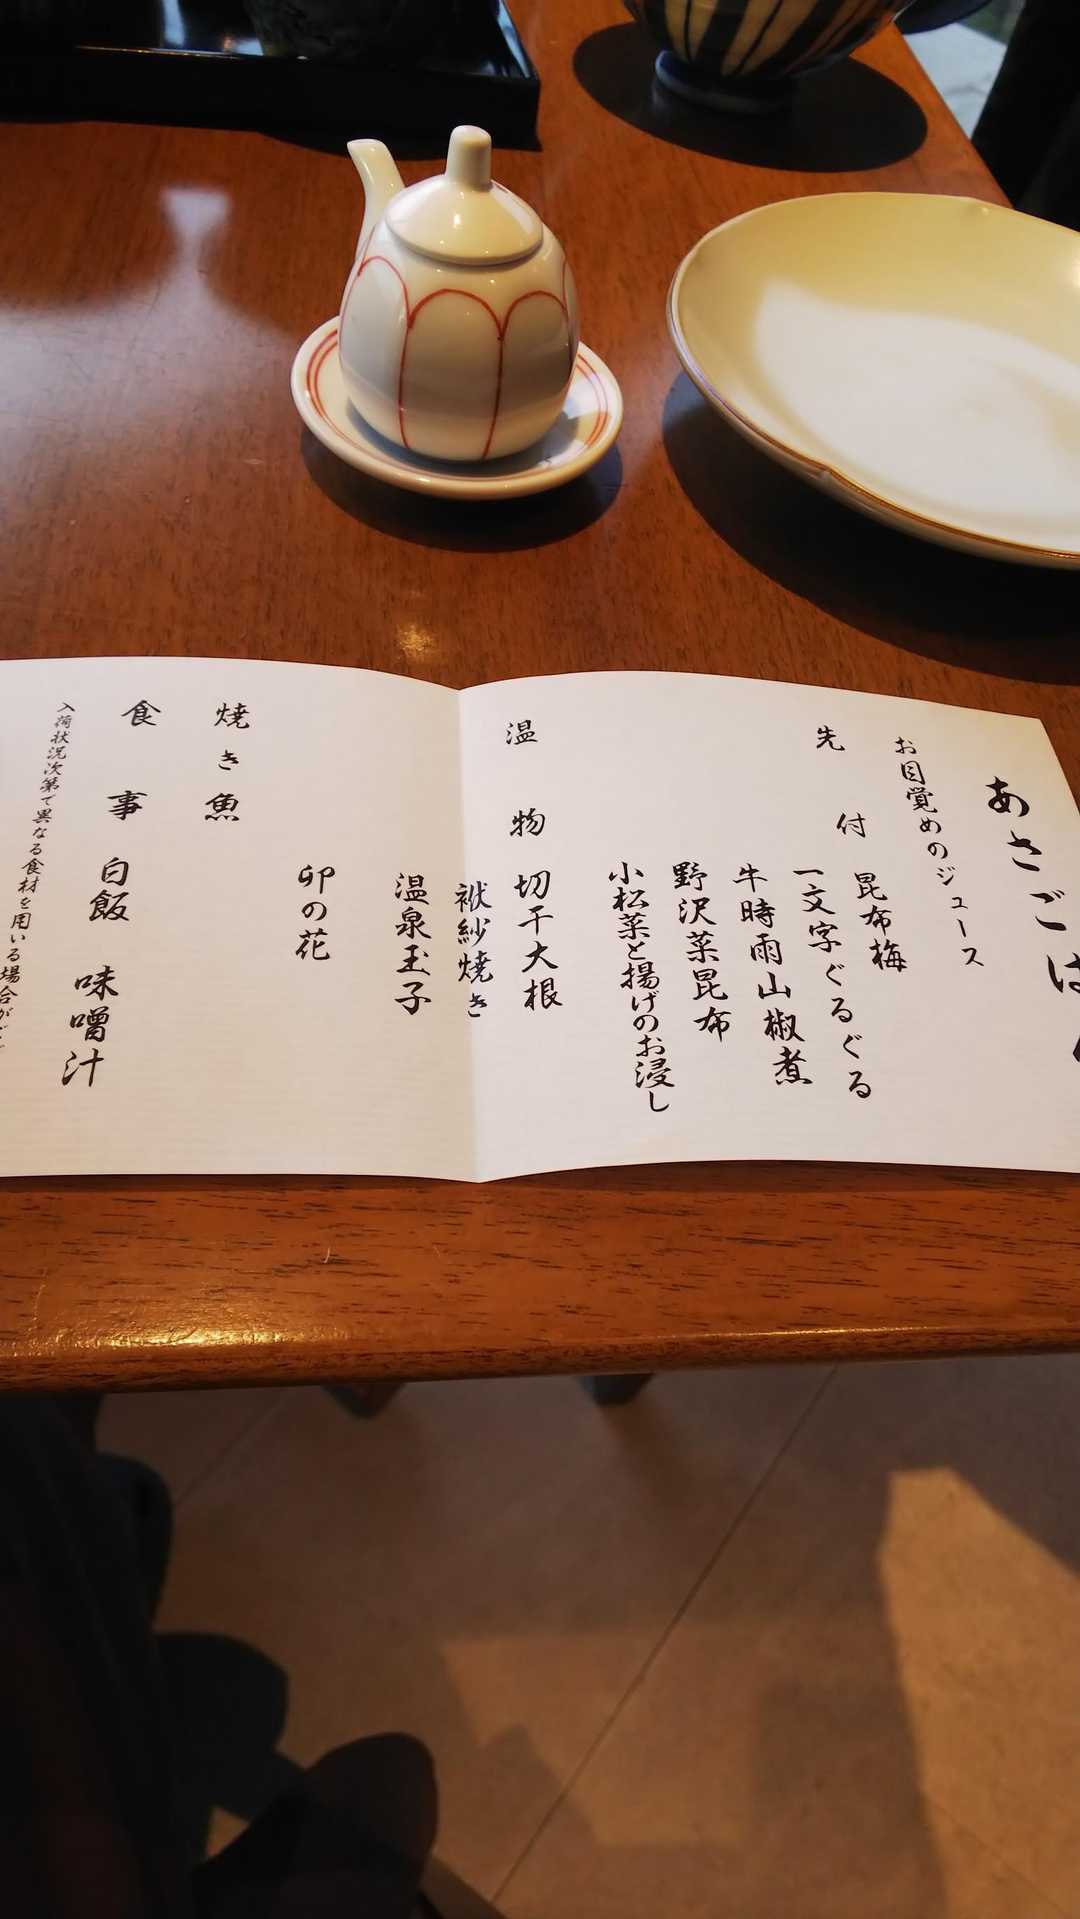 あさごは
お目覚めのジュース
先付 昆布梅
一文字ぐるぐる
牛時雨山椒煮
野沢菜昆布
小松菜と揚げのお浸し
温物 切干大根
袱紗焼き
温泉玉子
卯の花
焼き魚
食事 白飯 味噌汁
入荷状況次第で異なる食材を用いる場合が